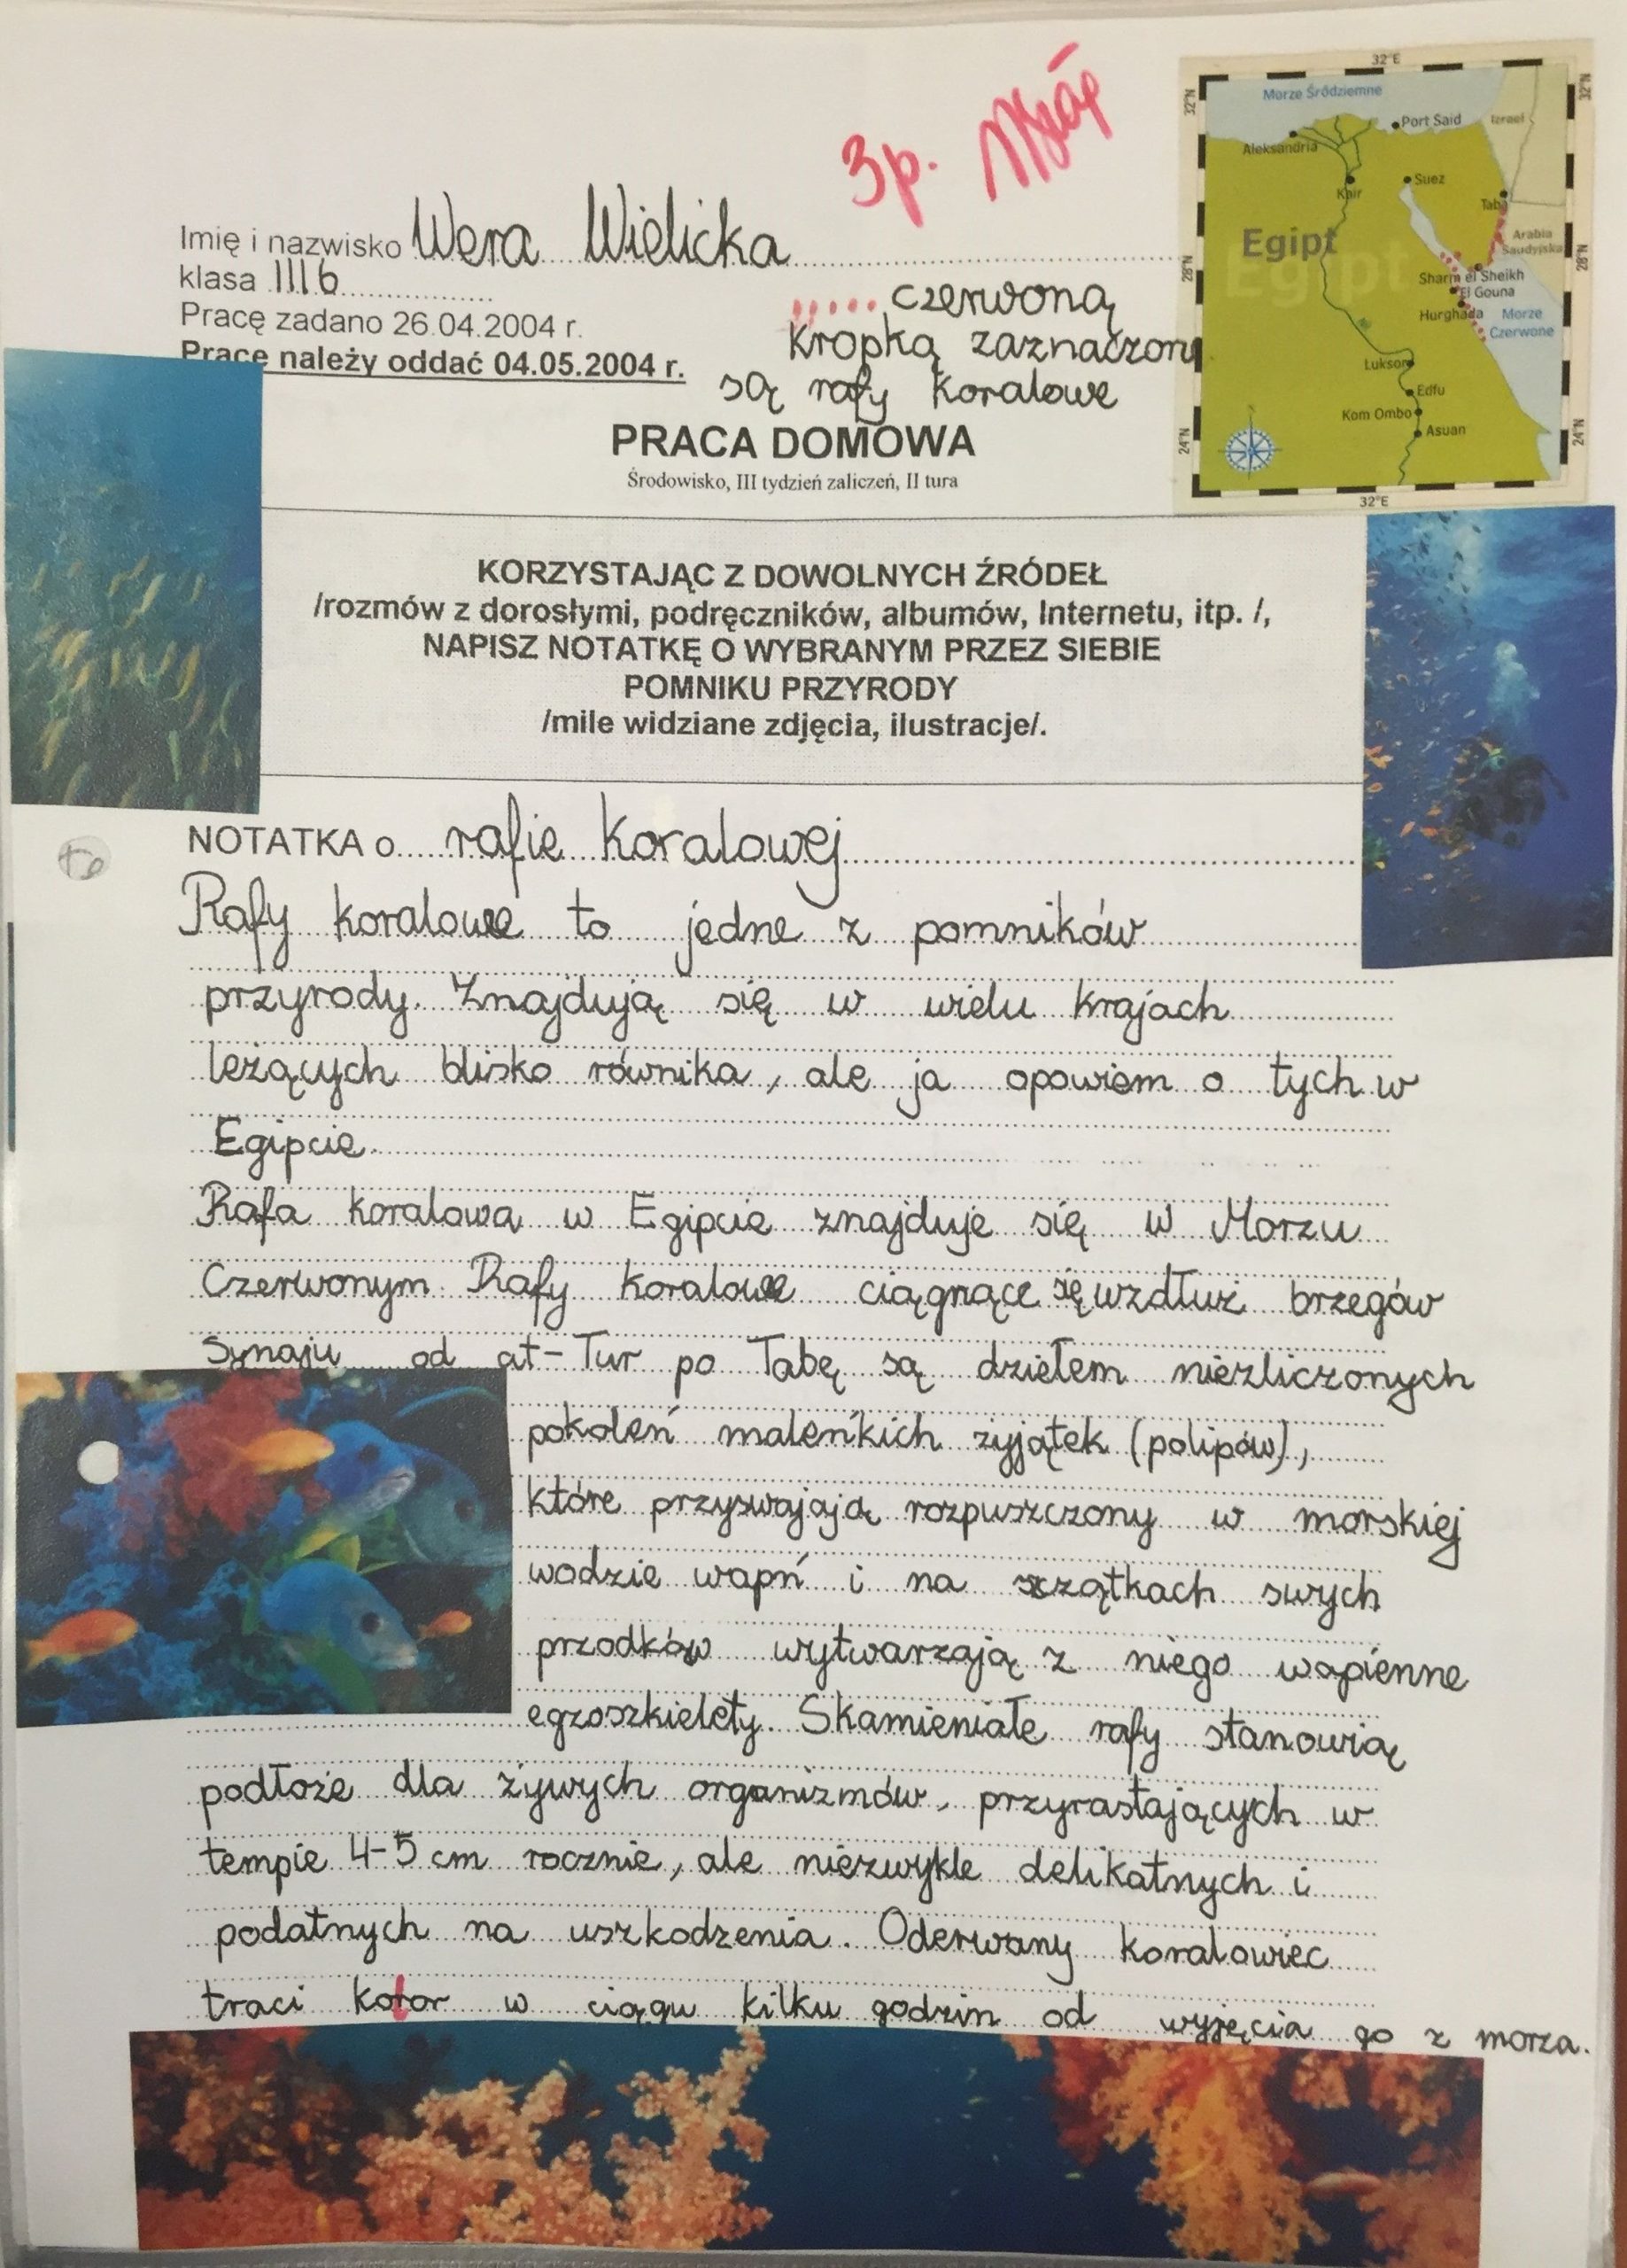 3p.
Imię i nazwisko Wera Wielicka
klasa III b
Pracę zadano 26.04.2004 r.
Pracę należy oddać 04.05.2004 r.
..... czerwoną
kropką zaznaczone
są rafy koralowe
32°E
32°N
32°N
Morze Śródziemne
Port Said
Izrael
Aleksandria
Kair
Suez
Taba
Egipt
Arabia
Saudyjska
28°N
28°N
Sharm el Sheikh
El Gouna
Hurghada
Morze
Czerwone
Luksor
Edfu
Kom Ombo
Asuan
24°N
24°N
32°E
PRACA DOMOWA
Środowisko, III tydzień zaliczeń, II tura
KORZYSTAJĄC Z DOWOLNYCH ŹRÓDEŁ
/rozmów z dorosłymi, podręczników, albumów, Internetu, itp. /,
NAPISZ NOTATKĘ O WYBRANYM PRZEZ SIEBIE
POMNIKU PRZYRODY
/mile widziane zdjęcia, ilustracje/.
NOTATKA o rafie koralowej
Rafy koralowe to jedne z pomników
przyrody. Znajdują się w wielu krajach
leżących blisko równika, ale ja opowiem o tych w
Egipcie.
Rafa koralowa w Egipcie znajduje się w Morzu
Czerwonym. Rafy koralowe ciągnące się wzdłuż brzegów
Synaju od at-Tur po Tabę są dziełem niezliczonych
pokoleń maleńkich żyjątek (polipów),
które przyswajają rozpuszczony w morskiej
wodzie wapń i na szczątkach swych
przodków wytwarzają z niego wapienne
egzoszkielety. Skamieniałe rafy stanowią
podłoże dla żywych organizmów, przyrastających w
tempie 4-5 cm rocznie, ale niezwykle delikatnych i
podatnych na uszkodzenia. Oderwany koralowiec
traci kolor w ciągu kilku godzin od wyjęcia go z morza.